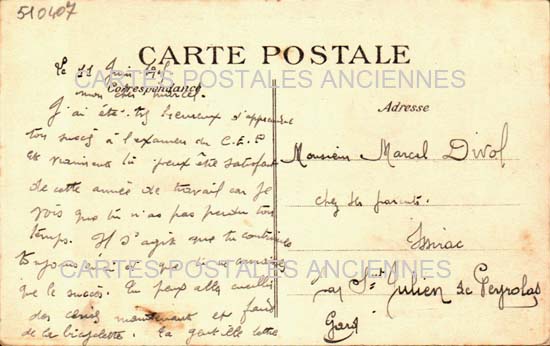 510407
CARTE POSTALE
CARTES POSTALES ANCIENNES
Correspondance
Adresse
Le 11 Juin
mon cher marcel.
J'ai été très heureux d'apprendre
ton succès à l'examen du C.E.P
et vraiment tu peux être satisfait
de cette année de travail car je
vois que tu n'as pas perdu ton
temps. Il s'agit que tu continues
toujours
que le succès. Tu peux aller cueillir
des cerises maintenant et faire
de la bicyclette. Ta gentille lettre
Monsieur Marcel Divol
chez ses parents.
Issirac
par St Julien de Peyrolas
Gard
CARTES POSTALES ANCIENNES